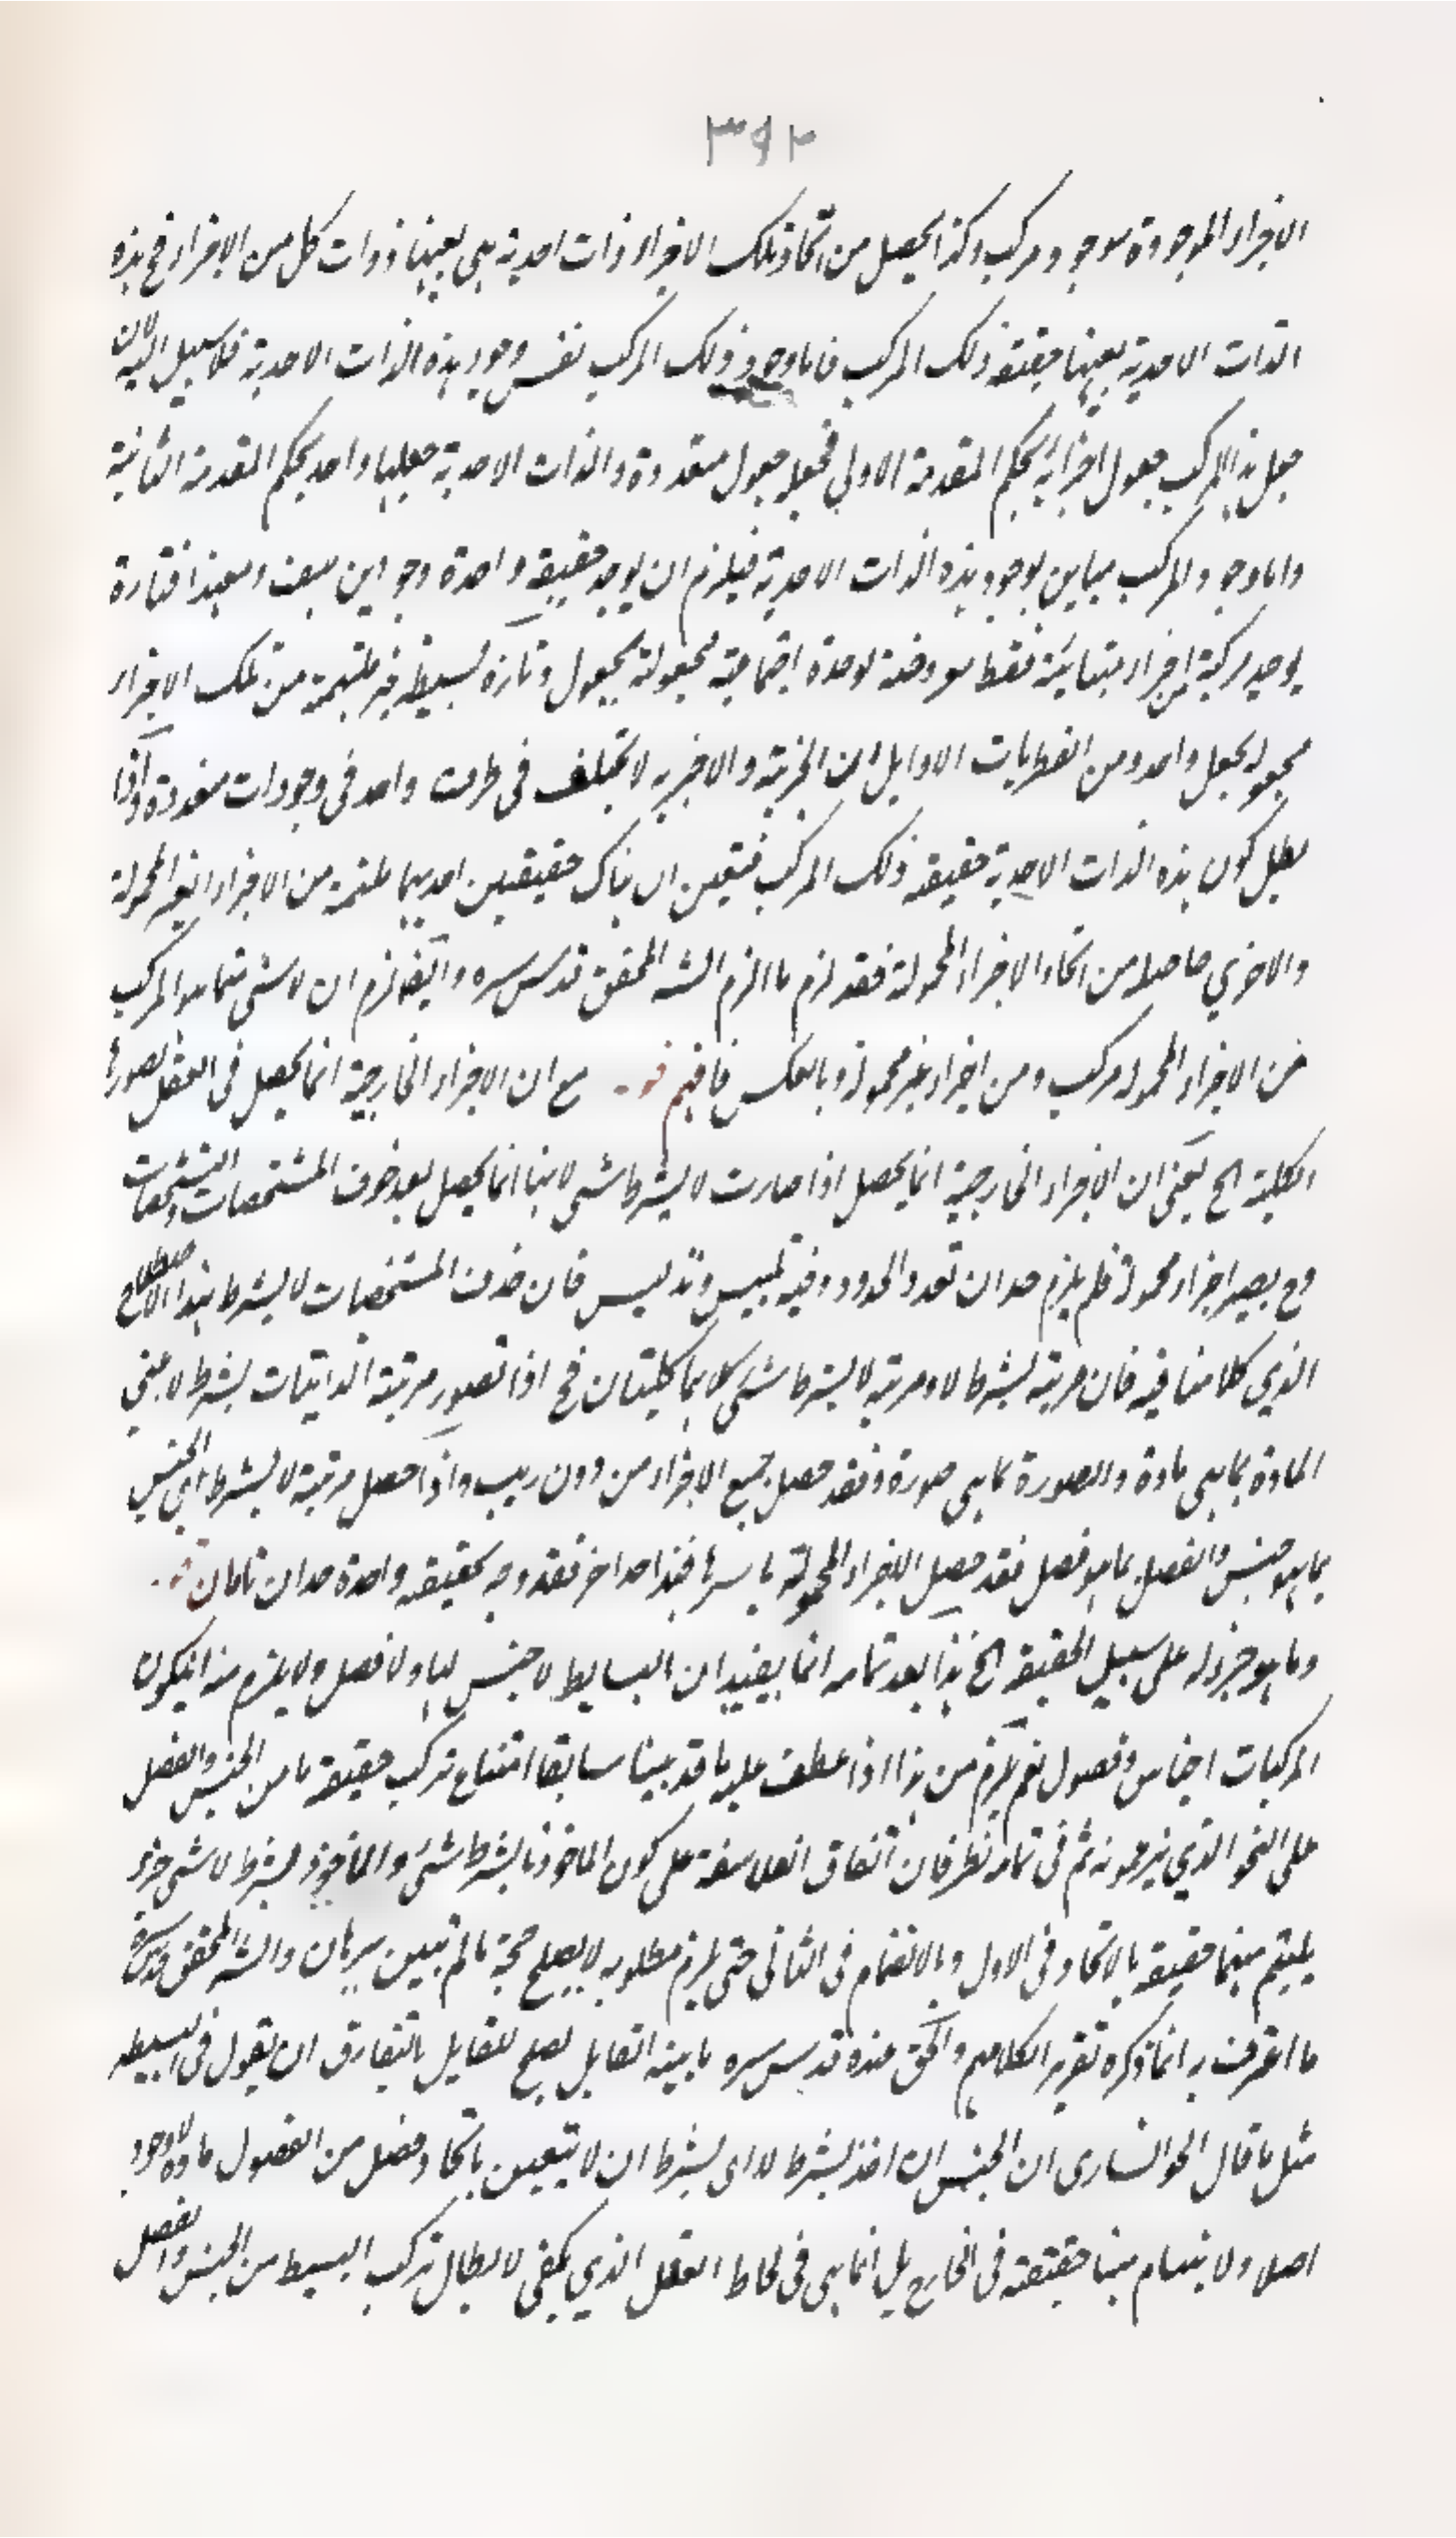 ٣٩٢
الاجزاء الموجودة موجود مركب وكذا يحصل من اتحاد تلك الاجزاء ذات احدية هي بعينها ذوات كل من الاجزاء فح هذه
الذات الاحدية بعينها حقيقة ذلك المركب فاما وجود ذلك المركب نفس وجود هذه الذات الاحدية فلا سبيل اليه لان
جعل هذا المركب جعول اجزائه بحكم المقدمة الاولى فجعله جعول متعددة والذات الاحدية جعلها واحد بحكم المقدمة الثانية
واما وجود المركب مباين لوجود هذه الذات الاحدية فيلزم ان يوجد حقيقة واحدة وجودين سيما بعينه افتارة
يوجد مركبة من اجزاء متباينة فقط معروضة لوحدة اجتماعية مجعولة بجعول وتارة بسيطة غير ملتئمة من تلك الاجزاء
مجعولة بجعل واحد ومن الفطريات الاوايل ان الجزئية والاجزئية لا تختلف في ظرف واحد في وجودات متعددة واذا
بطل كون هذه الذات الاحدية حقيقة ذلك المركب فتعين ان هناك حقيقتين احديهما ملتئمة من الاجزاء الغير المحمولة
والاخري حاصلة من اتحاد الاجزاء المحمولة فقد لزم ما الزم الشه المحقق قدس سره وايضا لزم ان لا شي مما هو المركب
من الاجزاء المحمولة مركب ومن اجزاء غير محمولة وبالعكس فافهم قوله مع ان الاجزاء الخارجية انما يحصل في العقل بصورها
الكلية الخ يعني ان الاجزاء الخارجية انما يحصل اذا صارت لا بشرط شي لانها انما يحصل بعد حذف المشخصات والتشخصات
وح يصير اجزاء محمولة فلم يلزم حدان تعدد الحدود وفيه تلبيس وتدليس فان حذف المشخصات لا بشرط بهذا الاصطلاح
الذي كلامنا فيه فان مرتبة بشرط لا ومرتبة لا بشرط شي كلاهما كليتان فح اذا تصور مرتبة الذاتيات بشرط لا يعني
المادة بما هي مادة والصورة بما هي صورة وفقد حصل جميع الاجزاء من دون ريب واذا حصل مرتبة لا بشرط اي الجنس
بما هو جنس والفصل بما هو فصل فقد حصل الاجزاء المحمولة باسرها فهذا حد اخر فقد وجد لحقيقة واحدة حدان تامان قوله
وما هو جزء له على سبيل الحقيقة الخ هذا بعد تمامه انما يفيد ان البسايط لا جنس لها ولا فصل ولا يلزم منه ان يكون
المركبات اجناس وفصول نعم يلزم من هذا اذا عطف عليه ما قد بينا سابقا امتناع تركب حقيقة ما من الجنس والفصل
على النحو الذي يزعمونه ثم في تمامه نظر فان اتفاق الفلاسفة على كون الماخوذ بشرط شي والماخوذ بشرط لا شي جزء
يلتئم منهما حقيقة بالاتحاد في الاول وبالانضمام في الثاني حتى يلزم مطلوبه لا يصلح حجة ما لم تبين ببرهان والشه المحقق قدس سره
ما اعترف به انما ذكره تقرير الكلامهم والحق عنده قدس سره ما بينه القايل يصلح للقايل بالتفارق ان يقول في البسيطة
مثل ما قال الخوانساري ان الجنس ان اخذ بشرط لا اي بشرط ان لا يتعين باتحاد فصل من الفصول مادة لا وجود
اصلا ولا يتام منها حقيقة في الخارج بل انما هي في لحاظ العقل الذي يكفي لابطال تركب البسيط من الجنس والفصل